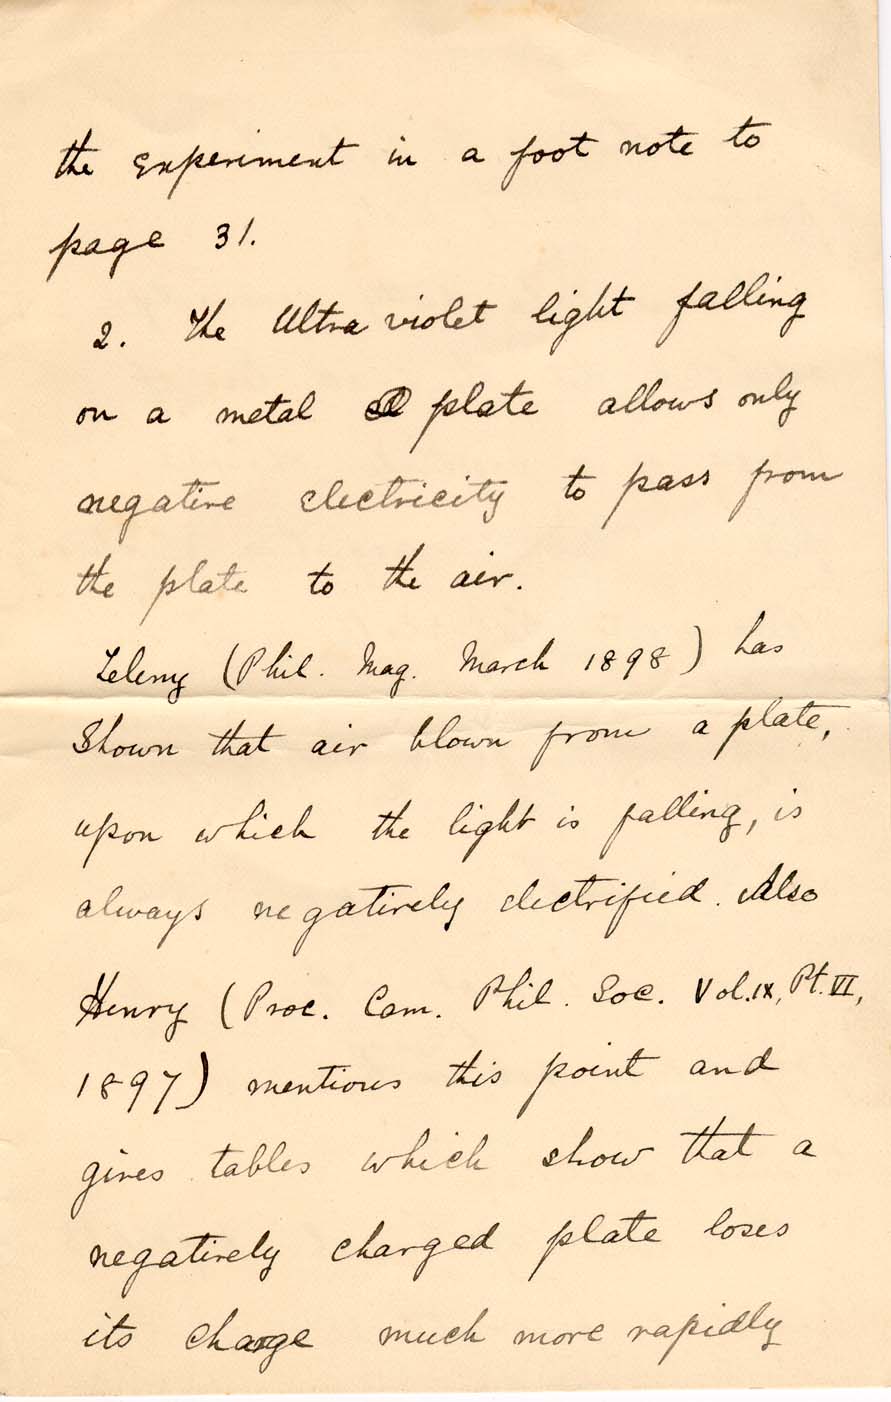 the Experiment in a foot note to
page 31.
2. The Ultra violet light falling
on a metal plate allows only
negative electricity to pass from
the plate to the air.
Zeleny (Phil. Mag. March 1898) has
Shown that air blown from a plate,
upon which the light is falling, is
always negatively electrified. Also
Henry (Proc. Cam. Phil. Soc. Vol. IX, Pt. VI,
1897) mentions this point and
gives tables which show that a
negatively charged plate loses
its charge much more rapidly